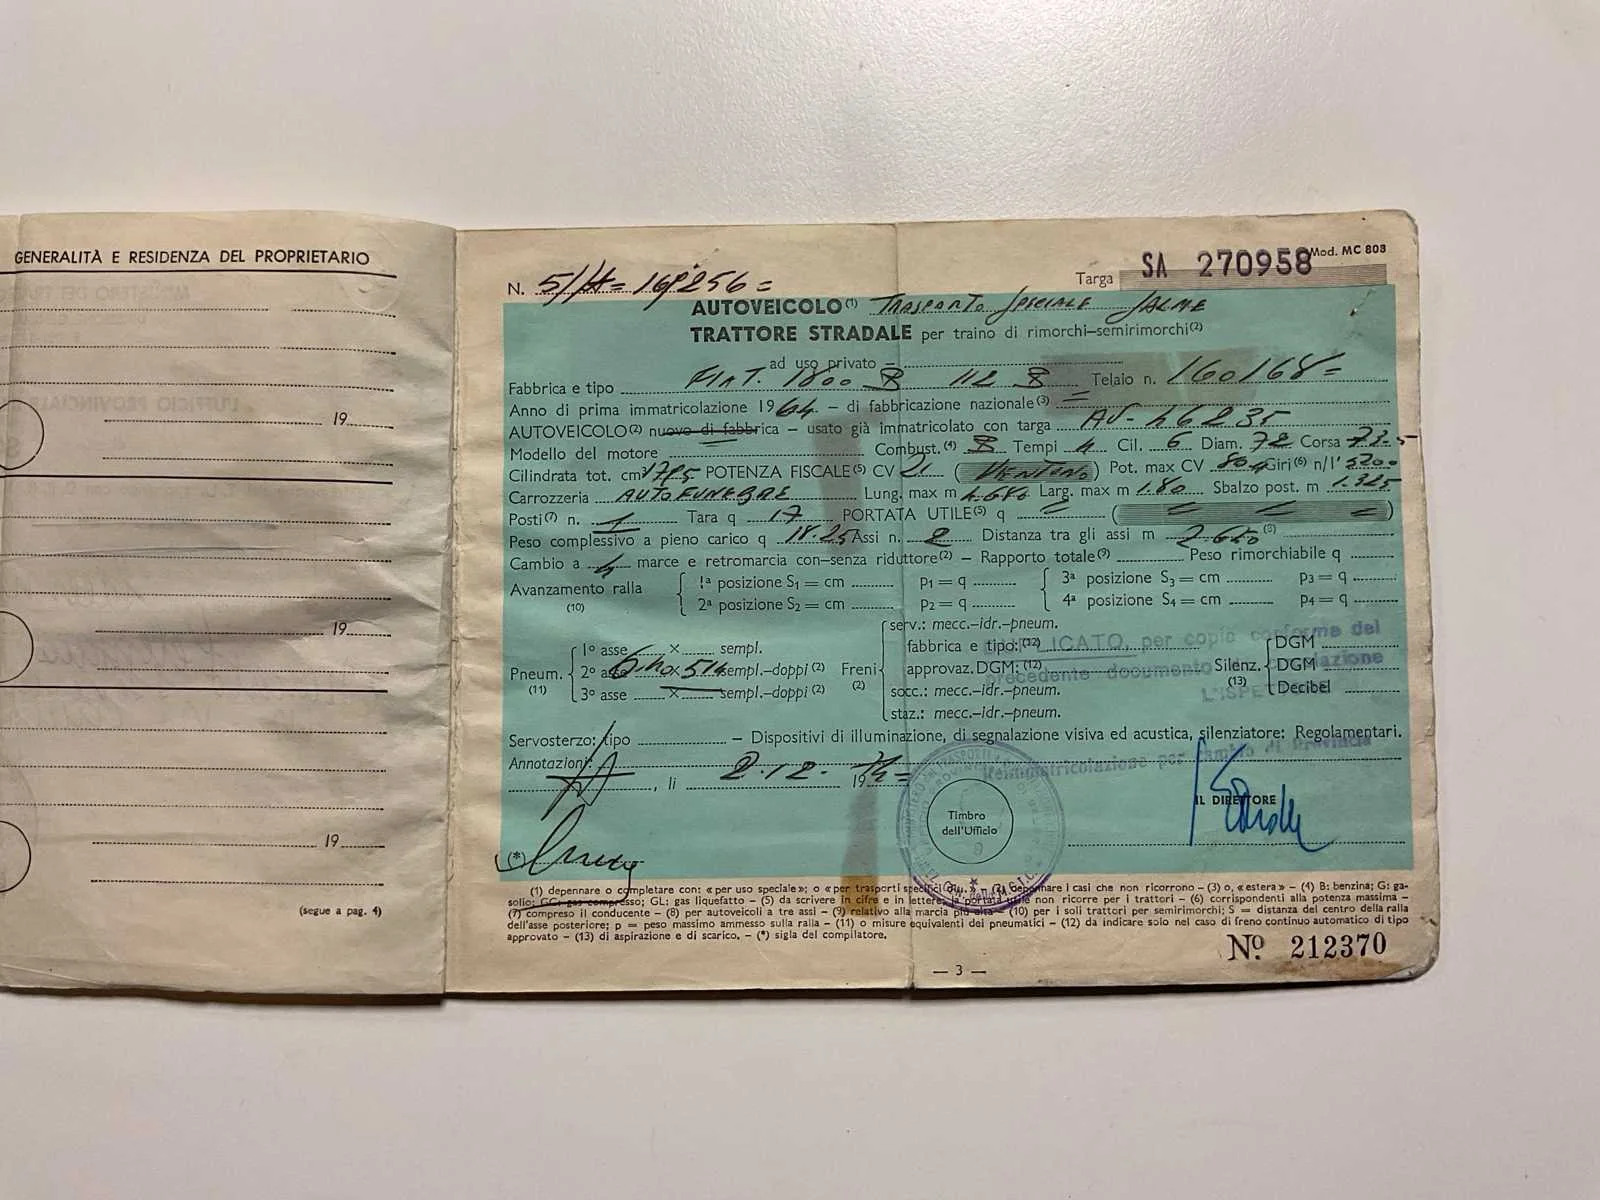 GENERALITÀ E RESIDENZA DEL PROPRIETARIO
19
19
19
(segue a pag. 4)
Mod. MC 803
Targa SA 270958
N.
AUTOVEICOLO (1) Trasporto Speciale Salme
TRATTORE STRADALE per traino di rimorchi-semirimorchi (2)
ad uso privato
Fabbrica e tipo FIAT. 1800 B 112 B Telaio n. 160168=
Anno di prima immatricolazione 1964. - di fabbricazione nazionale (3) =
AUTOVEICOLO (2) nuovo di fabbrica - usato già immatricolato con targa AV-46235
Modello del motore Combust. (4) B Tempi 4 Cil. 6 Diam. 72 Corsa 73.5
Cilindrata tot. cm³ 1795 POTENZA FISCALE (5) CV 21 (VENTUNO) Pot. max CV 80.4 Giri (6) n/1' 5200
Carrozzeria AUTOFUNEBRE Lung. max m 4.680 Larg. max m 1.80 Sbalzo post. m 1.325
Posti (7) n. 1 Tara q 17 PORTATA UTILE (5) q = ( = = = )
Peso complessivo a pieno carico q 18.25 Assi n. 2 Distanza tra gli assi m 2.650 (8)
Cambio a 4 marce e retromarcia con-senza riduttore (2) - Rapporto totale (9) Peso rimorchiabile q
Avanzamento ralla (10) { 1ª posizione S1 = cm P1 = q { 3ª posizione S3 = cm P3 = q
2ª posizione S2 = cm P2 = q 4ª posizione S4 = cm P4 = q
Pneum. (11) { 1º asse × sempl.
2º asse 640 × 514 sempl.-doppi (2)
3º asse × sempl.-doppi (2)
Freni (2) { serv.: mecc.-idr.-pneum.
fabbrica e tipo: (12)
approvaz. DGM: (12)
socc.: mecc.-idr.-pneum.
staz.: mecc.-idr.-pneum.
Silenz. (13) { DGM
DGM
Decibel
DUPLICATO, per copia conforme del
precedente documento di circolazione
L'ISPETTORE
Servosterzo: tipo - Dispositivi di illuminazione, di segnalazione visiva ed acustica, silenziatore: Regolamentari.
Reimmatricolazione per cambio di Provincia
Annotazioni:
, li 2.12. 19
IL DIRETTORE
Timbro
dell'Ufficio
(*)
(1) depennare o completare con: « per uso speciale »; o « per trasporti specifici di... » - (2) depennare i casi che non ricorrono - (3) o, « estera » - (4) B: benzina; G: ga-
solio; GC: gas compresso; GL: gas liquefatto - (5) da scrivere in cifre e in lettere; la portata utile non ricorre per i trattori - (6) corrispondenti alla potenza massima -
(7) compreso il conducente - (8) per autoveicoli a tre assi - (9) relativo alla marcia più alta - (10) per i soli trattori per semirimorchi; S = distanza del centro della ralla
dell'asse posteriore; p = peso massimo ammesso sulla ralla - (11) o misure equivalenti dei pneumatici - (12) da indicare solo nel caso di freno continuo automatico di tipo
approvato - (13) di aspirazione e di scarico. - (*) sigla del compilatore.
Nº 212370
— 3 —